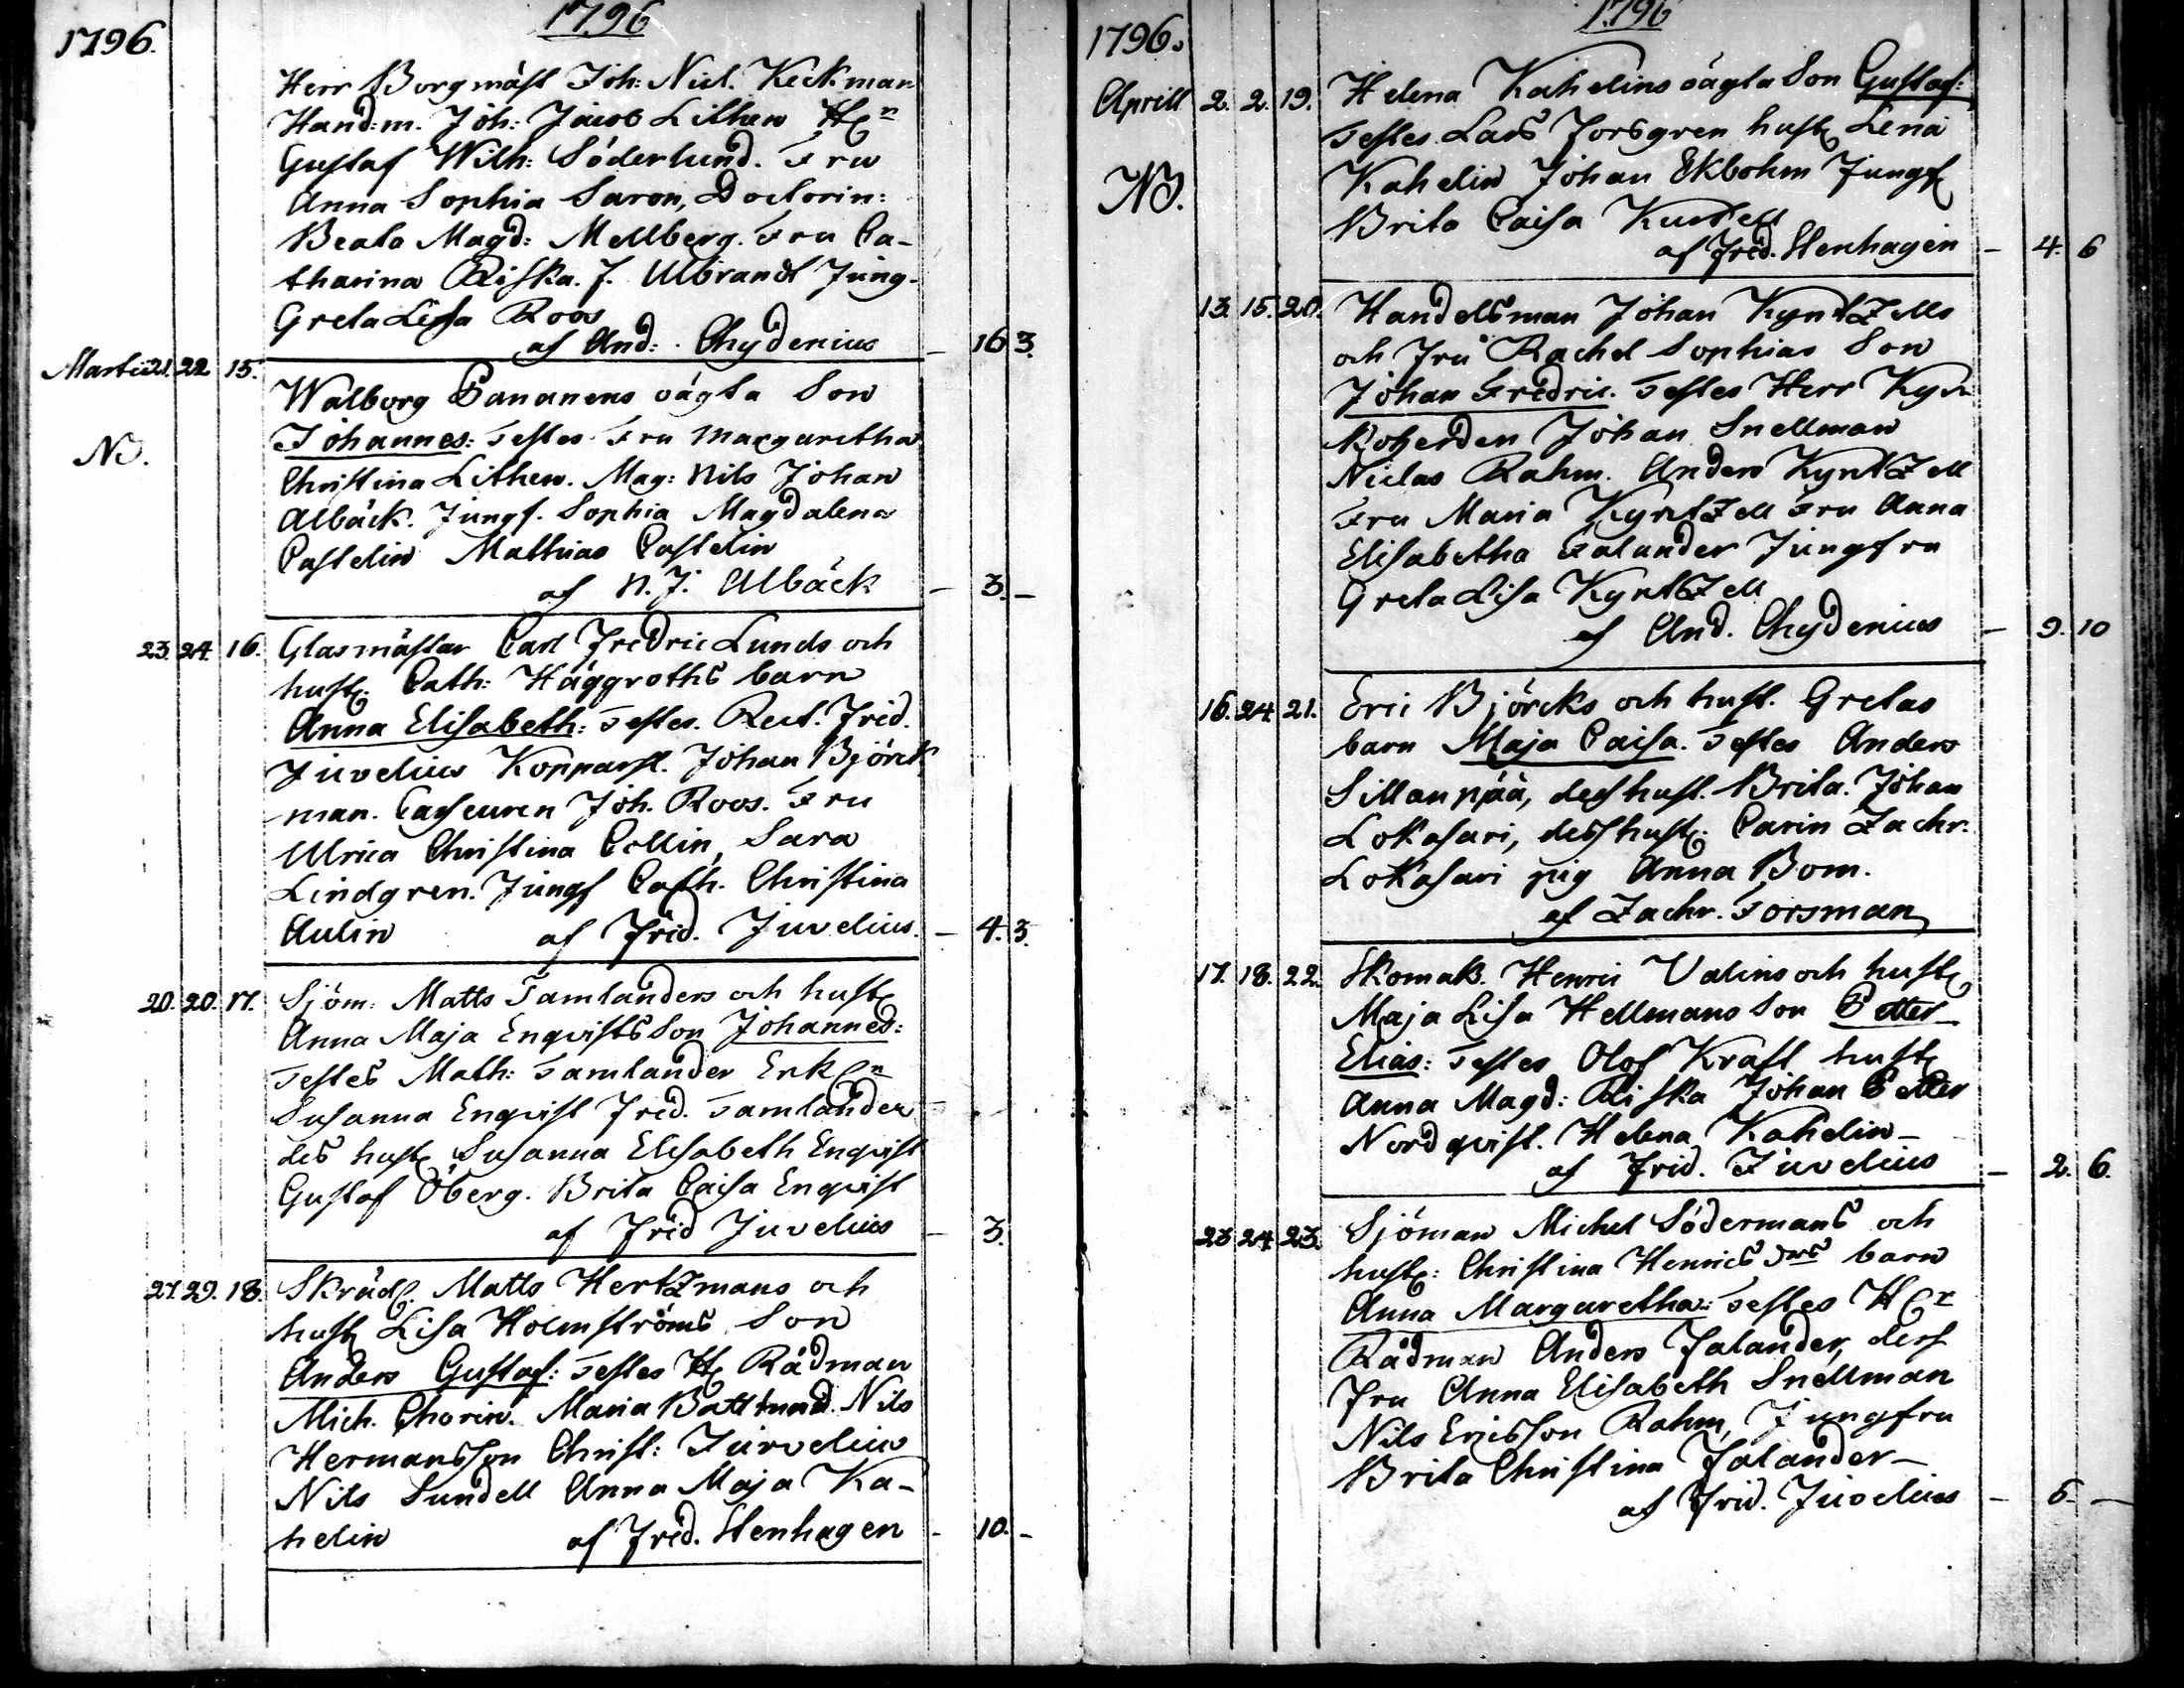 1796.
1796
Herr Borgmäst Joh: Nicl. Keckman
Hand:m. Joh: Jacob Lithen Hr
Gustaf Wilh: Söderlund. Fru
Anna Sophia Saron, Doctorin:
Beata Magd: Mellberg. Fru Ca-
tharina Riska. J. Ulbrandt Jung.
Greta Lisa Roos
af And: Chydenius — 16 3.
Martii 21. 22 15. Walborg Pananens oägta Son
Johannes: Testes Fru Margaretha
NB.
Christina Lithen. Mag: Nils Johan
Albäck. Jungf. Sophia Magdalena
Castelin Mathias Castelin
af N. J. Albäck — 3. —
23. 24. 16. Glasmästar Carl Fredric Lunds och
hust. Cath: Häggroths barn
Anna Elisabeth: Testes. Rect. Frid.
Juvelius Kopparsl. Johan Björck
man. Casseuren Joh. Roos. Fru
Ulrica Christina Collin, Sara
Lindgren. Jungf Cath. Christina
Aulin af Frid. Juvelius. — 4. 3.
20. 20. 17. Sjöm: Matts Tamlanders och hust
Anna Maja Enqvists Son Johannes:
Testes Math: Tamlander Enk
Susanna Enqvist Fred. Tamlander
des hust Susanna Elisabeth Enqvist
Gustaf Öberg. Brita Caisa Enqvist
af Frid Juvelius — 3.
27. 29. 18. Skräd. Matts Hertzmans och
hust Lisa Holmströms Son
Anders Gustaf: Testes H Rådman
Mich. Chorin. Maria Nils
Hermansson Christ: Juvelius
Nils Sundell Anna Maja Ka-
helin af Frid. Stenhagen — 10. —
1796.
1796
Aprill 2. 2. 19. Helena Kahelins oägta Son Gustaf:
Testes Lars Forsgren hust Lena
NB.
Kahelin Johan Ekbohm Jungf
Brita Caisa
af Frid. Stenhagen — 4. 6
13. 15. 20. Handelsman Johan Kyntzells
och Fru Rachel Sophias Son
Johan Fredric. Testes Herr Kyr
koherden Johan Snellman
Niclas Rahm. Anders Kyntzell
Fru Maria Kyntzell Fru Anna
Elisabetha Falander Jungfru
Greta Lisa Kyntzell
af And. Chydenius — 9. 10
16. 24. 21. Eric Björcks och hust. Gretas
barn Maja Caisa. Testes Anders
Sillanpää, dess hust. Brita. Johan
Lokasari, dess hust. Carin Zachr.
Lokasari pig Anna Bom.
af Zachr. Forsman
17. 18. 22. Skomak. Henric Valins och hust
Maja Lisa Hellmans Son Petter
Elias: Testes Olof Kraft hust
Anna Magd: Riska Johan Petter
Nordqvist. Helena Kahelin —
af Frid. Juvelius — 2. 6.
23 24. 23. Sjöman Michel Södermans och
hust: Christina Henrics drs barn
Anna Margaretha: Testes Hr
Rådman Anders Falander, dess
Fru Anna Elisabeth Snellman
Nils Ericsson Rahm, Jungfru
Brita Christina Falander —
af Frid. Juvelius — 6. —